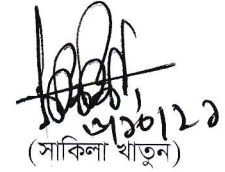 ৩/১০/২১
(সাকিলা খাতুন)